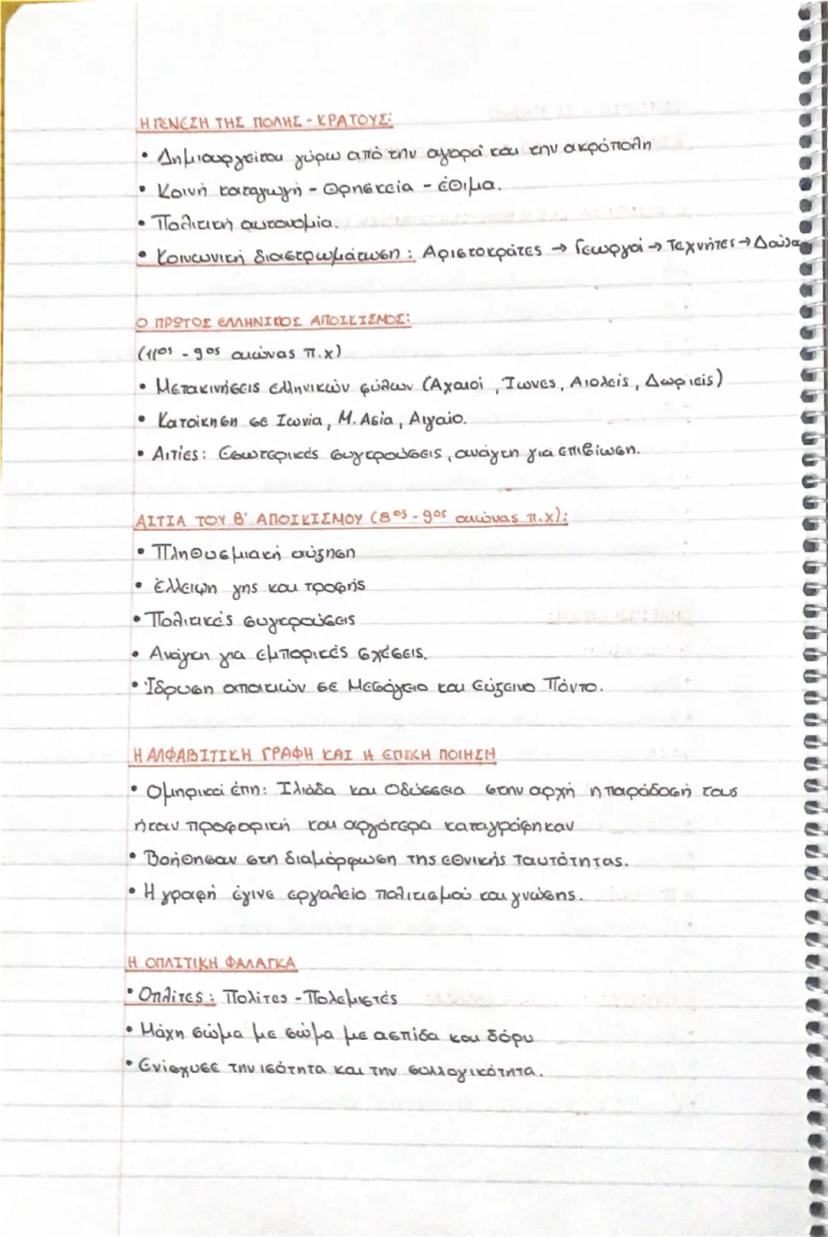 Η ΓΕΝΕΣΗ ΤΗΣ ΠΟΛΗΣ - ΚΡΑΤΟΥΣ:
• Δημιουργείται γύρω από την αγορά και την ακρόπολη
• Κοινή καταγωγή - Θρησκεία - έθιμα.
• Πολιτική αυτονομία.
• Κοινωνική διαστρωμάτωση: Αριστοκράτες → Γεωργοί → Τεχνήτες → Δούλοι
Ο ΠΡΩΤΟΣ ΕΛΛΗΝΙΚΟΣ ΑΠΟΙΚΙΣΜΟΣ:
(11ος - 9ος αιώνας π.χ)
• Μετακινήσεις ελληνικών φύλων (Αχαιοί, Ίωνες, Αιολείς, Δωριείς)
• Κατοίκηση σε Ιωνία, Μ. Ασία, Αιγαίο.
• Αιτίες: Εσωτερικές συγκρούσεις, ανάγκη για επιβίωση.
ΑΙΤΙΑ ΤΟΥ Β' ΑΠΟΙΚΙΣΜΟΥ (8ος - 9ος αιώνας π.χ):
• Πληθυσμιακή αύξηση
• Έλλειψη γης και τροφής
• Πολιτικές συγκρούσεις
• Ανάγκη για εμπορικές σχέσεις.
• Ίδρυση αποικιών σε Μεσόγειο και Εύξεινο Πόντο.
Η ΑΛΦΑΒΙΤΙΚΗ ΓΡΑΦΗ ΚΑΙ Η ΕΠΙΚΗ ΠΟΙΗΣΗ
• Ομηρικά έπη: Ιλιάδα και Οδύσσεια στην αρχή η παράδοσή τους
ήταν προφορική και αργότερα καταγράφηκαν
• Βοήθησαν στη διαμόρφωση της εθνικής ταυτότητας.
• Η γραφή έγινε εργαλείο πολιτισμού και γνώσης.
Η ΟΠΛΙΤΙΚΗ ΦΑΛΑΓΚΑ
• Οπλίτες: Πολίτες - Πολεμιστές
• Μάχη σώμα με σώμα με ασπίδα και δόρυ
• Ενίσχυσε την ισότητα και την συλλογικότητα.